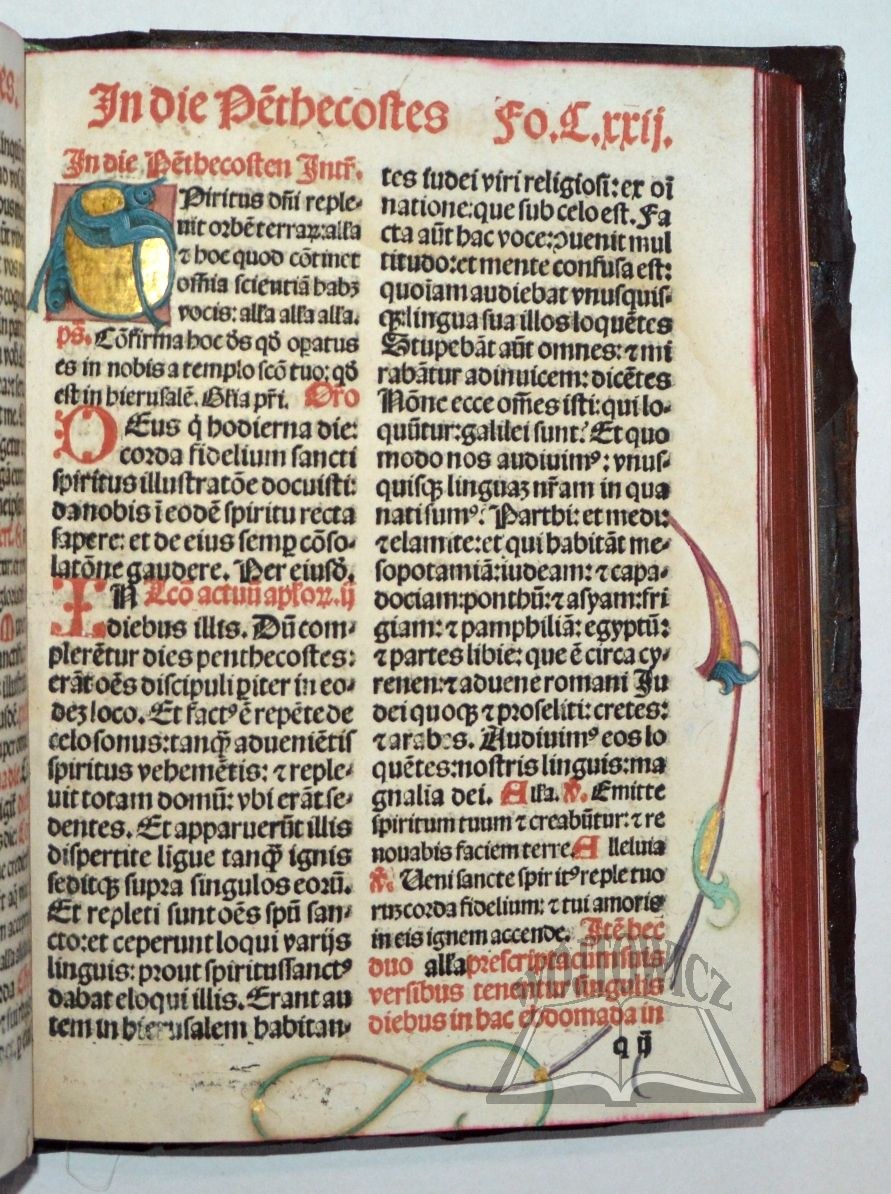 In die Pēthecostes Fo.C.xxij.
In die Pēthecosten Intr̄.
SPiritus dn̄i reple-
uit orbē terraꝝ: alľa
⁊ hoc quod cōtinet
om̄ia scientiā habꝫ
vocis: alľa alľa alľa.
ps. Cōfirma hoc d̄s qd̄ opatus
es in nobis a templo scō tuo: qd̄
est in hierusalē. Gľia pr̄i. Oro
DEus q̇ hodierna die:
corda fidelium sancti
spiritus illustratōe docuisti:
da nobis ī eodē spiritu recta
sapere: et de eius semꝑ cōso-
latōne gaudere. Per eiusd̄.
IN Lcō actuū apľoꝝ. ij
diebus illis. Dū com-
plerētur dies penthecostes:
erāt oēs discipuli ꝑiter in eo-
dez loco. Et factꝰ ē repēte de
celo sonus: tanqȝ̄ aduēniētis
spiritus vehemētis: ⁊ reple-
uit totam domū: vbi erāt se-
dentes. Et apparuerūt illis
dispertite ligue tanqȝ̄ ignis
seditqȝ supra singulos eorū.
Et repleti sunt oēs spū san-
cto: et ceperunt loqui varijs
linguis: prout spiritussanctꝰ
dabat eloqui illis. Erant au
tem in hierusalem habitan-
tes iudei viri religiosi: ex oī
natione: que sub celo est. Fa
cta aūt hac voce: ꝯuenit mul
titudo: et mente confusa est:
quoīam audiebat vnusquis-
qȝ: lingua sua illos loquētes
Stupebāt aūt omnes: ⁊ mi
rabātur adinuicem: dicētes
Nōne ecce om̄es isti: qui lo-
quūtur: galilei sunt? Et quo
modo nos audiuimꝰ: vnus-
quisqȝ linguaꝫ nr̄am in qua
nati sumꝰ? Parthi: et medi:
⁊ elamite: et qui habitāt me-
sopotamiā: iudeam: ⁊ capa-
dociam: ponthū: ⁊ asyam: fri
giam: ⁊ pamphiliā: egyptū:
⁊ partes libie: que ē circa cy-
renen: ⁊ aduene romani Iu
dei quoqȝ ⁊ proseliti: cretes:
⁊ arabes. Audiuimꝰ eos lo
quētes: nostris linguis: ma
gnalia dei. Alľa. ℣. Emitte
spiritum tuum ⁊ creabūtur: ⁊ re
nouabis faciem terre. Alleluia
℣. Ueni sancte spiritꝰ reple tuo
ruꝫ corda fidelium: ⁊ tui amoris
in eis ignem accende. Itē hec
duo alľa prescripta cum suis
versibus tenentur singulis
diebus in hac ebdomada in
q ij